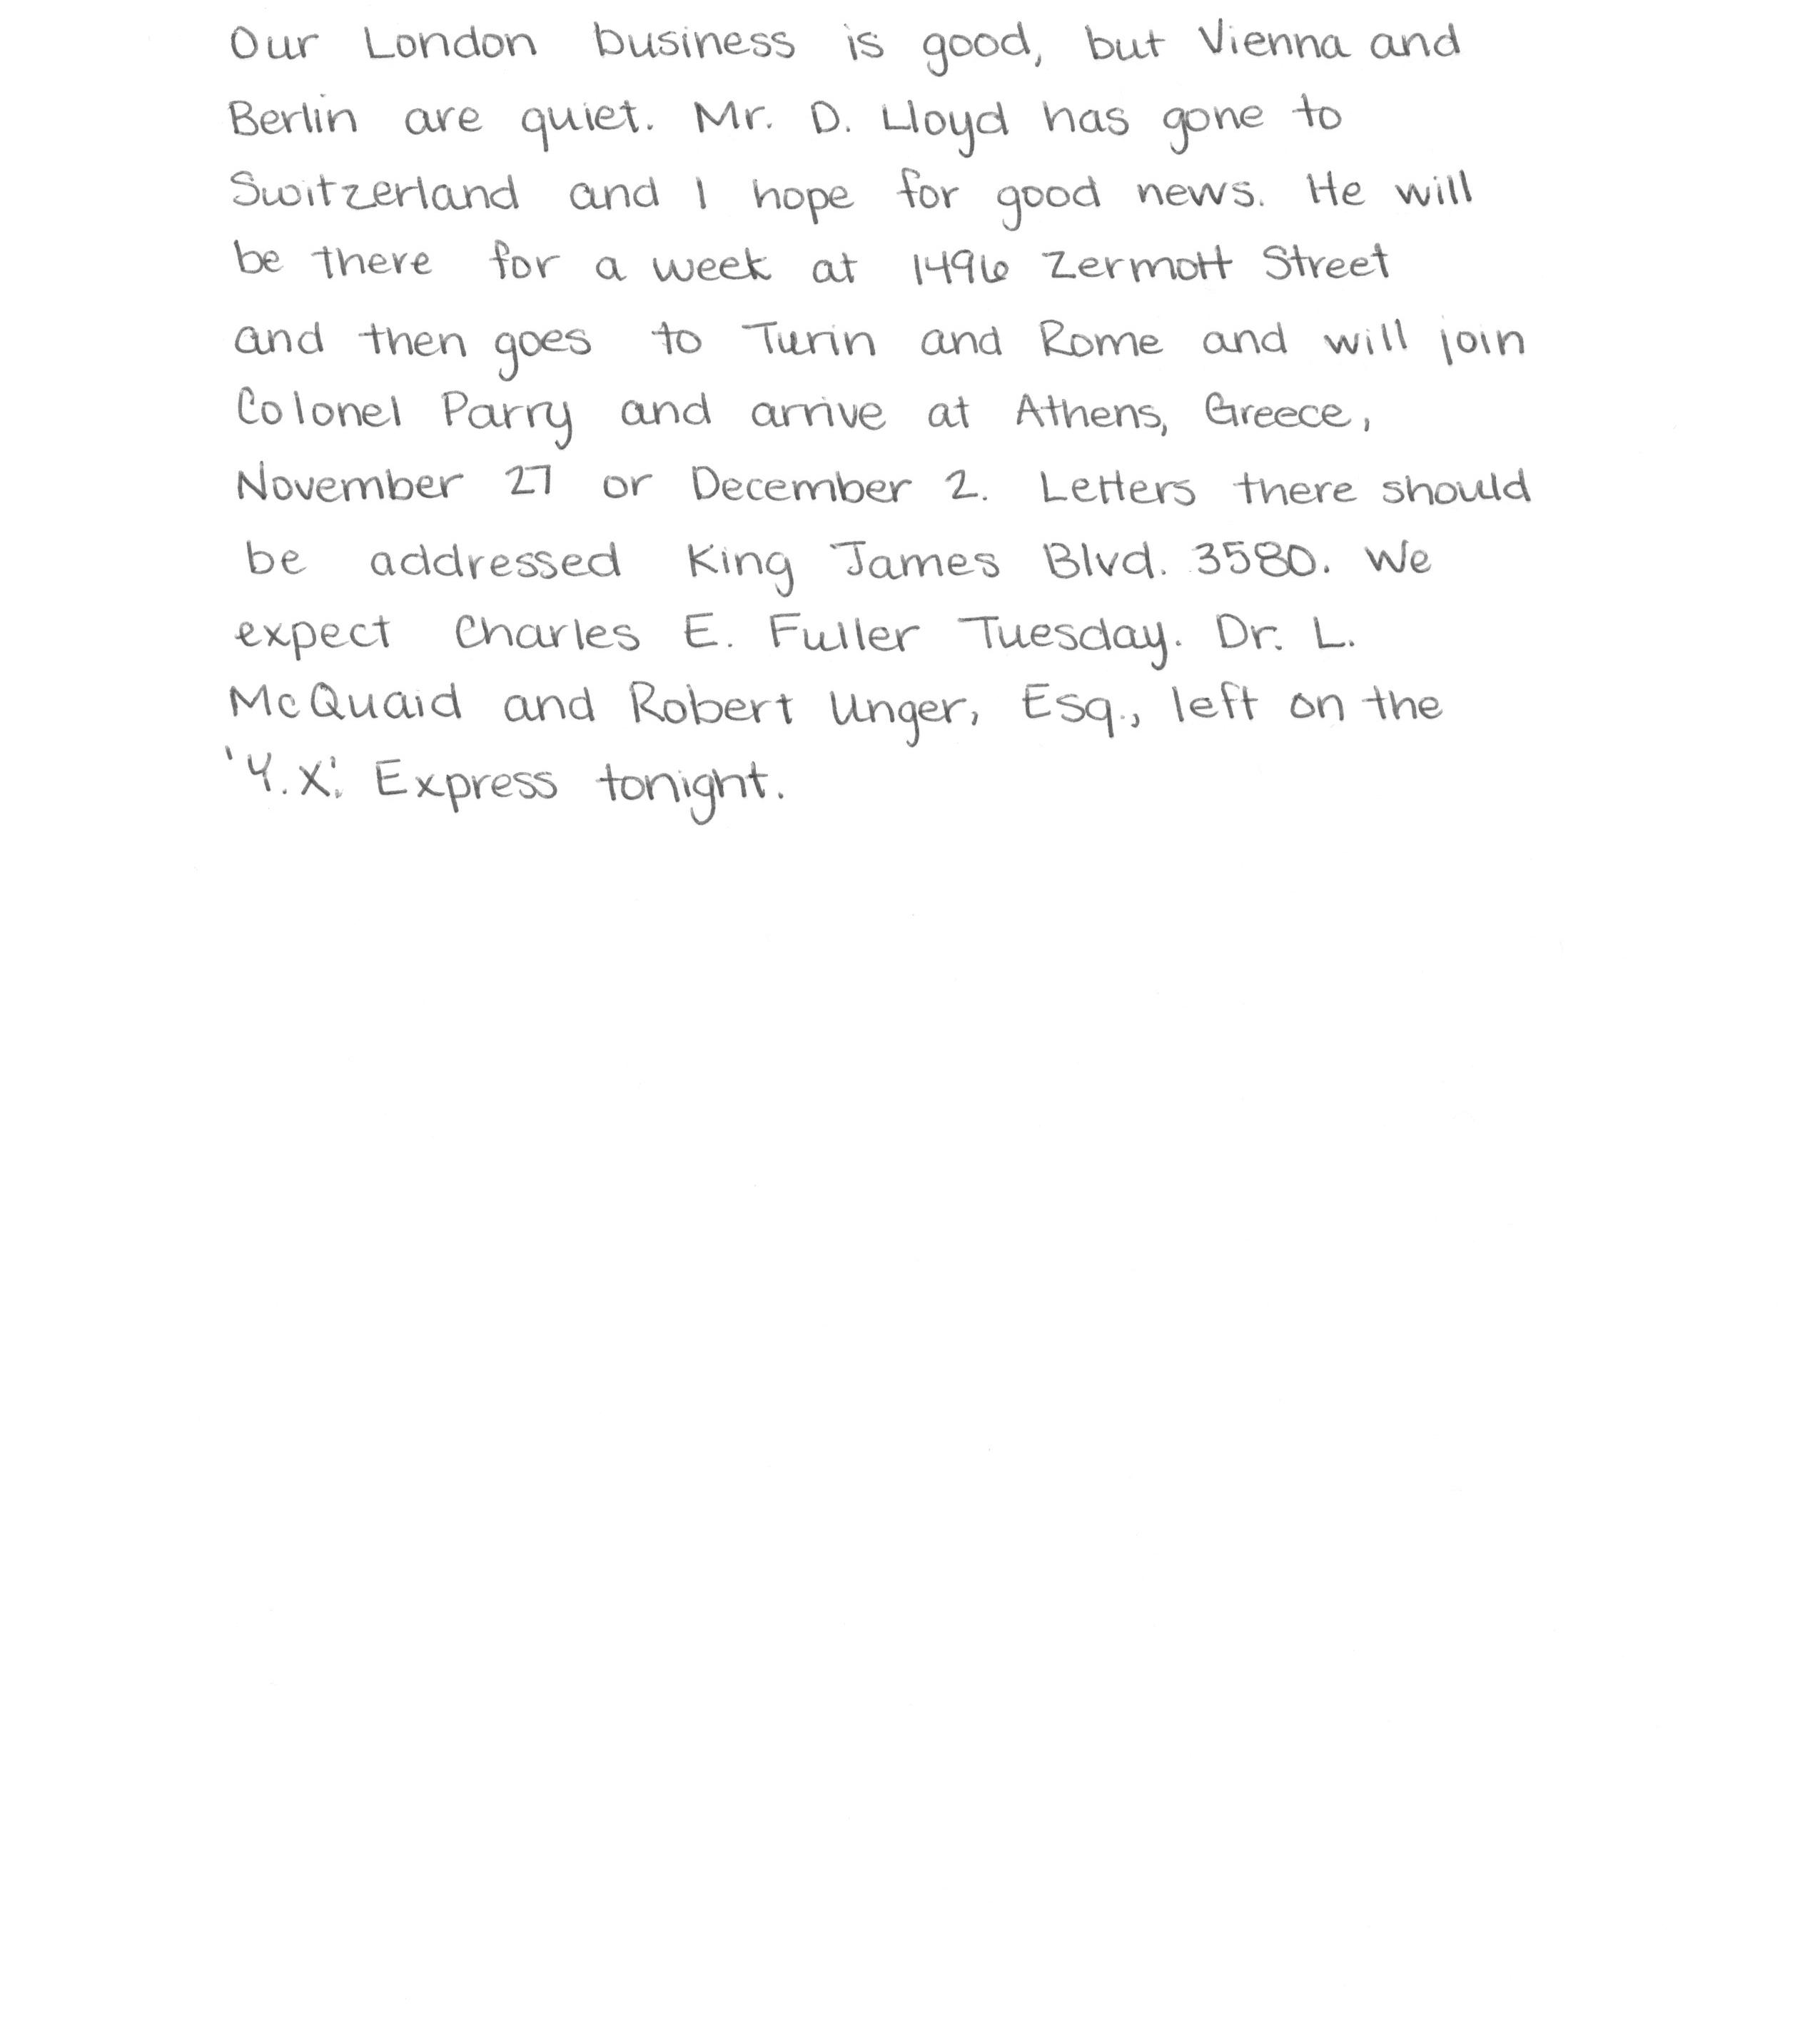 Our London business is good, but Vienna and
Berlin are quiet. Mr. D. Lloyd has gone to
Switzerland and I hope for good news. He will
be there for a week at 1496 Zermott Street
and then goes to Turin and Rome and will join
Colonel Parry and arrive at Athens, Greece,
November 27 or December 2. Letters there should
be addressed King James Blvd. 3580. We
expect Charles E. Fuller Tuesday. Dr. L.
McQuaid and Robert Unger, Esq., left on the
'Y.X.' Express tonight.